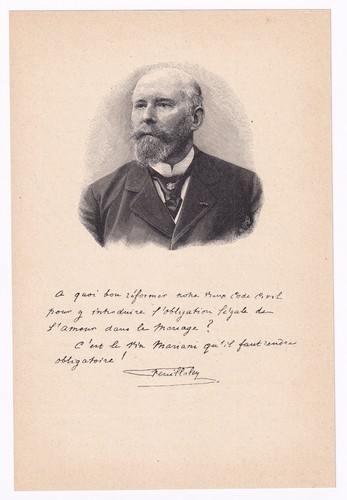 A quoi bon réformer notre vieux Code Civil
pour y introduire l'obligation légale de
l'amour dans le Mariage ?
C'est le Vin Mariani qu'il faut rendre
obligatoire !